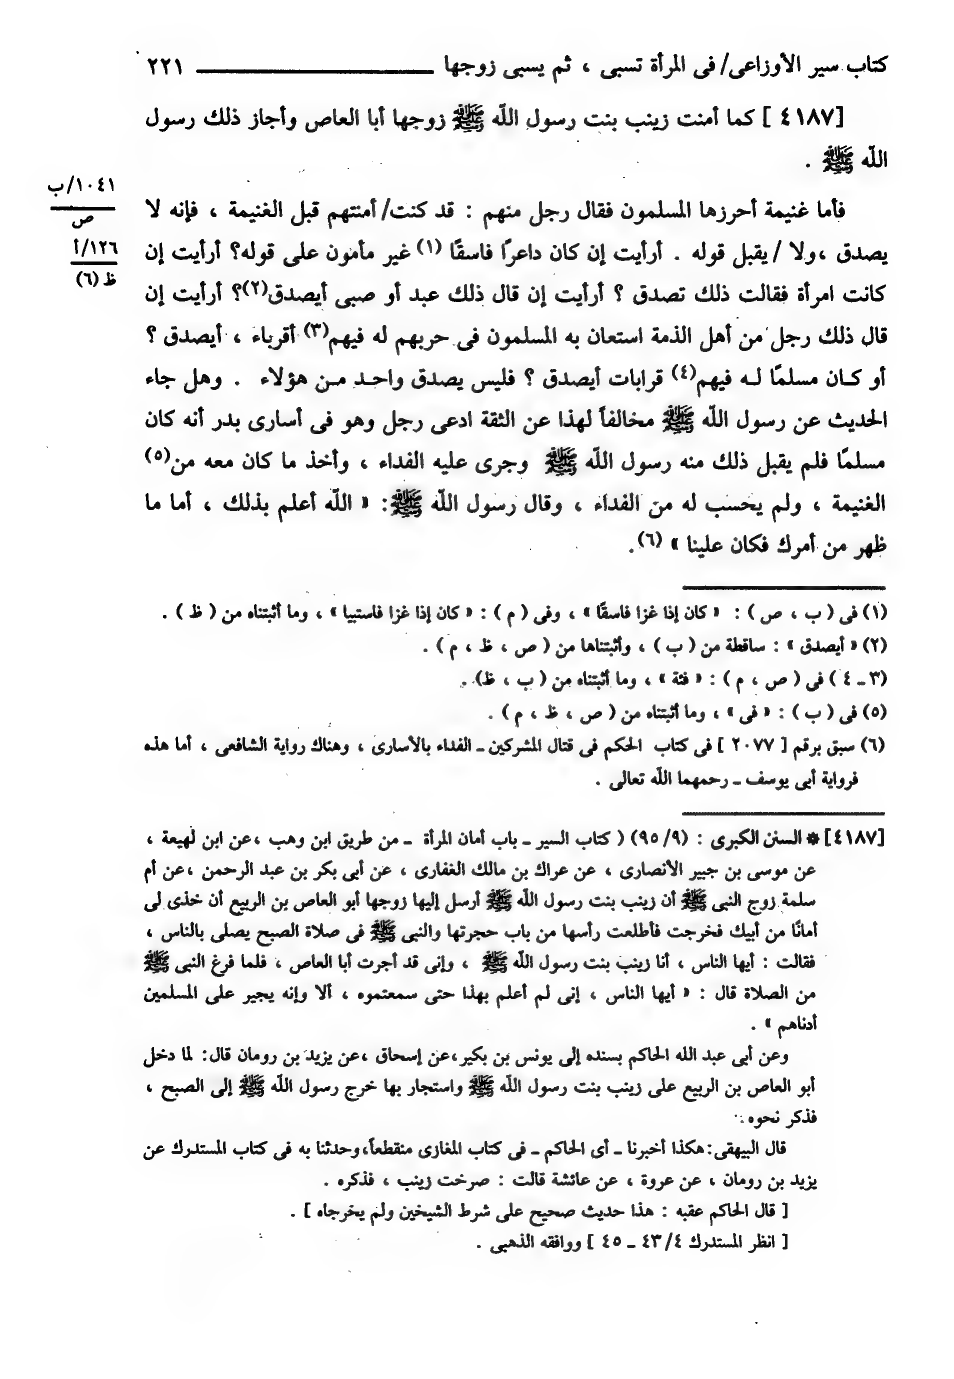 كتاب سير الأوزاعى/ فى المرأة تسبى ، ثم يسبى زوجها ــــــــــــ ٢٢١
[٤١٨٧ ] كما أمنت زينب بنت رسول اللّه ﷺ زوجها أبا العاص وأجاز ذلك رسول
اللّه ﷺ .
فأما غنيمة أحرزها المسلمون فقال رجل منهم : قد كنت/ أمنتهم قبل الغنيمة ، فإنه لا
يصدق ،ولا /يقبل قوله . أرأيت إن كان داعرًا فاسقًا (١) غير مأمون على قوله؟ أرأيت إن
كانت امرأة فقالت ذلك تصدق ؟ أرأيت إن قال ذلك عبد أو صبى أيصدق(٢)؟ أرأيت إن
قال ذلك رجل من أهل الذمة استعان به المسلمون فى حربهم له فيهم(٣) أقرباء ، أيصدق ؟
أو كان مسلمًا له فيهم(٤) قرابات أيصدق ؟ فليس يصدق واحد من هؤلاء . وهل جاء
الحديث عن رسول اللّه ﷺ مخالفاً لهذا عن الثقة ادعى رجل وهو فى أسارى بدر أنه كان
مسلمًا فلم يقبل ذلك منه رسول اللّه ﷺ وجرى عليه الفداء ، وأخذ ما كان معه من(٥)
الغنيمة ، ولم يحسب له من الفداء ، وقال رسول اللّه ﷺ: « اللّه أعلم بذلك ، أما ما
ظهر من أمرك فكان علينا » (٦).
١٠٤١/ب
ص
١٢٦/أ
ظ (٦)
(١) فى ( ب ، ص ) : « كان إذا غزا فاسقًا » ، وفى ( م ) : « كان إذا غزا فاستبيا » ، وما أثبتناه من ( ظ ) .
(٢) « أيصدق » : ساقطة من ( ب ) ، وأثبتناها من ( ص ، ظ ، م ) .
(٣ ـ ٤ ) فى ( ص ، م ) : « فئة » ، وما أثبتناه من ( ب ، ظ) .
(٥) فى ( ب ) : « فى » ، وما أثبتناه من ( ص ، ظ ، م ) .
(٦) سبق برقم [ ٢٠٧٧ ] فى كتاب الحكم فى قتال المشركين ـ الفداء بالأسارى ، وهناك رواية الشافعى ، أما هذه
فرواية أبى يوسف ـ رحمهما اللّه تعالى .
[٤١٨٧] * السنن الكبرى : (٩/ ٩٥) ( كتاب السير ـ باب أمان المرأة ـ من طريق ابن وهب ،عن ابن لهيعة ،
عن موسى بن جبير الأنصارى ، عن عراك بن مالك الغفارى ، عن أبى بكر بن عبد الرحمن ،عن أم
سلمة زوج النبى ﷺ أن زينب بنت رسول اللّه ﷺ أرسل إليها زوجها أبو العاص بن الربيع أن خذى لى
أمانًا من أبيك فخرجت فأطلعت رأسها من باب حجرتها والنبى ﷺ فى صلاة الصبح يصلى بالناس ،
فقالت : أيها الناس ، أنا زينب بنت رسول اللّه ﷺ ، وإنى قد أجرت أبا العاص ، فلما فرغ النبى ﷺ
من الصلاة قال : « أيها الناس ، إنى لم أعلم بهذا حتى سمعتموه ، ألا وإنه يجير على المسلمين
أدناهم » .
وعن أبى عبد الله الحاكم بسنده إلى يونس بن بكير،عن إسحاق ،عن يزيد بن رومان قال: لما دخل
أبو العاص بن الربيع على زينب بنت رسول اللّه ﷺ واستجار بها خرج رسول اللّه ﷺ إلى الصبح ،
فذكر نحوه.
قال البيهقى:هكذا أخبرنا ـ أى الحاكم ـ فى كتاب المغازى منقطعاً،وحدثنا به فى كتاب المستدرك عن
يزيد بن رومان ، عن عروة ، عن عائشة قالت : صرخت زينب ، فذكره .
[ قال الحاكم عقبه : هذا حديث صحيح على شرط الشيخين ولم يخرجاه ] .
[ انظر المستدرك ٤/ ٤٣ ـ ٤٥ ] ووافقه الذهبى .